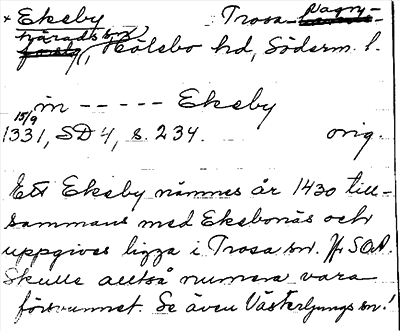 × Ekeby Trosa - Vagn-
härads sn,
Hölebo hd, Söderm. l.
in ----- Ekeby
15/9
1331, SD 4, s. 234. orig.
Ett Ekeby nämnes år 1430 till-
sammans med Eksbonäs och
uppgives ligga i Trosa sn. Jfr SOA.
Skulle alltså numera vara
försvunnet. Se även Västerljungs sn.!